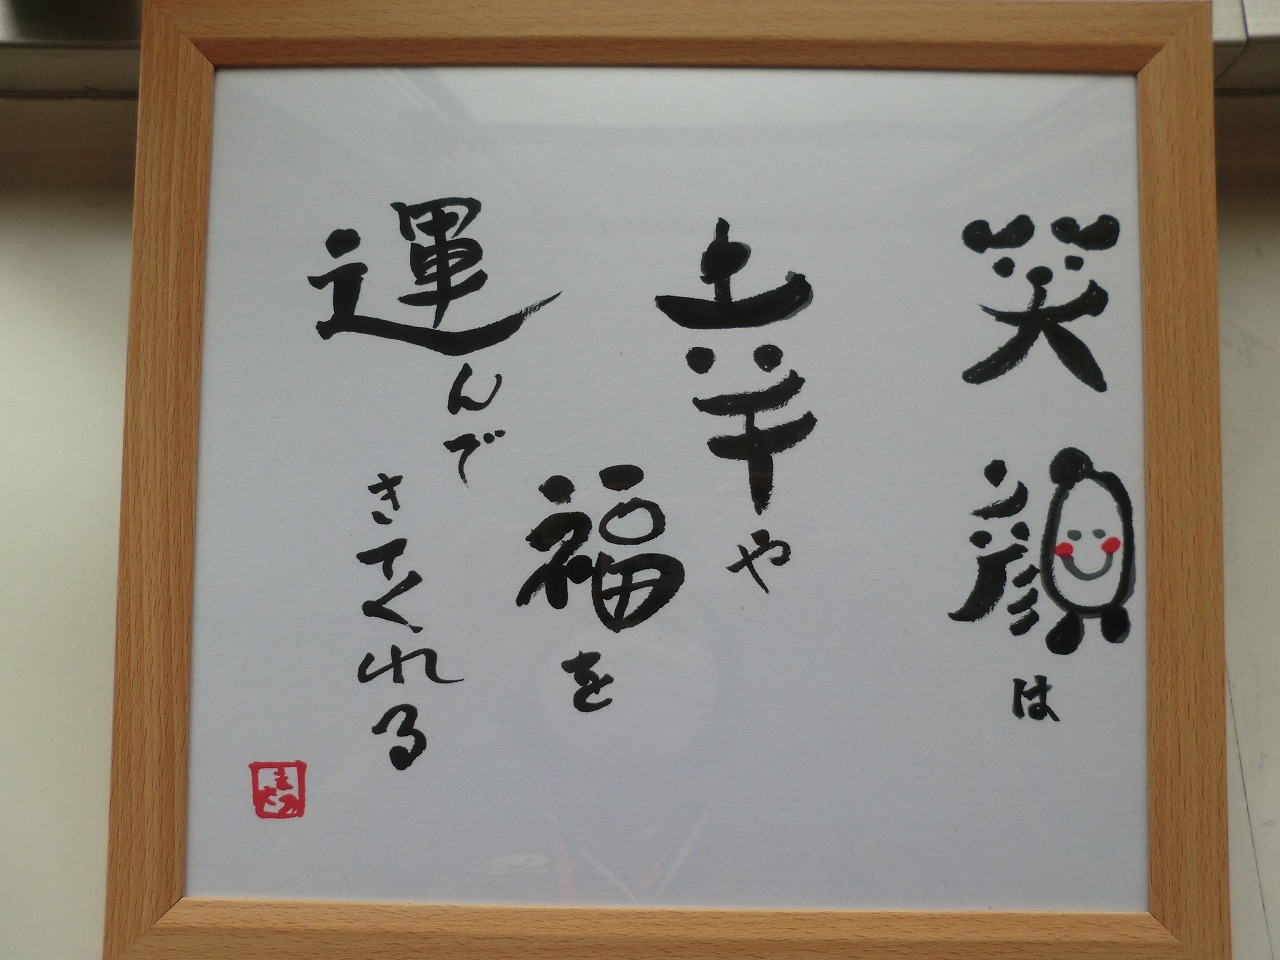 笑顔は
幸や
福を
運んで
きてくれる